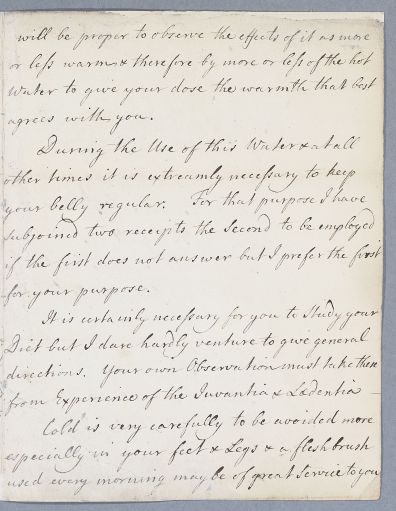 will be proper to observe the effects of it as more
or less warm & therefore by more or less of the hot
Water to give your dose the warmth that best
agrees with you.
During the Use of this Water & at all
other times it is extreamly necessary to keep
your belly regular. For that purpose I have
subjoined two receipts the Second to be employed
if the first does not answer but I prefer the first
for your purpose.
It is certainly necessary for you to Study your
Diet but I dare hardly venture to give general
directions. Your own Observation must take them
from Experience of the Juvantia & Lædentia
Cold is very carefully to be avoided more
especially in your feet & Legs & a fleshbrush
used every morning may be of great Service to you